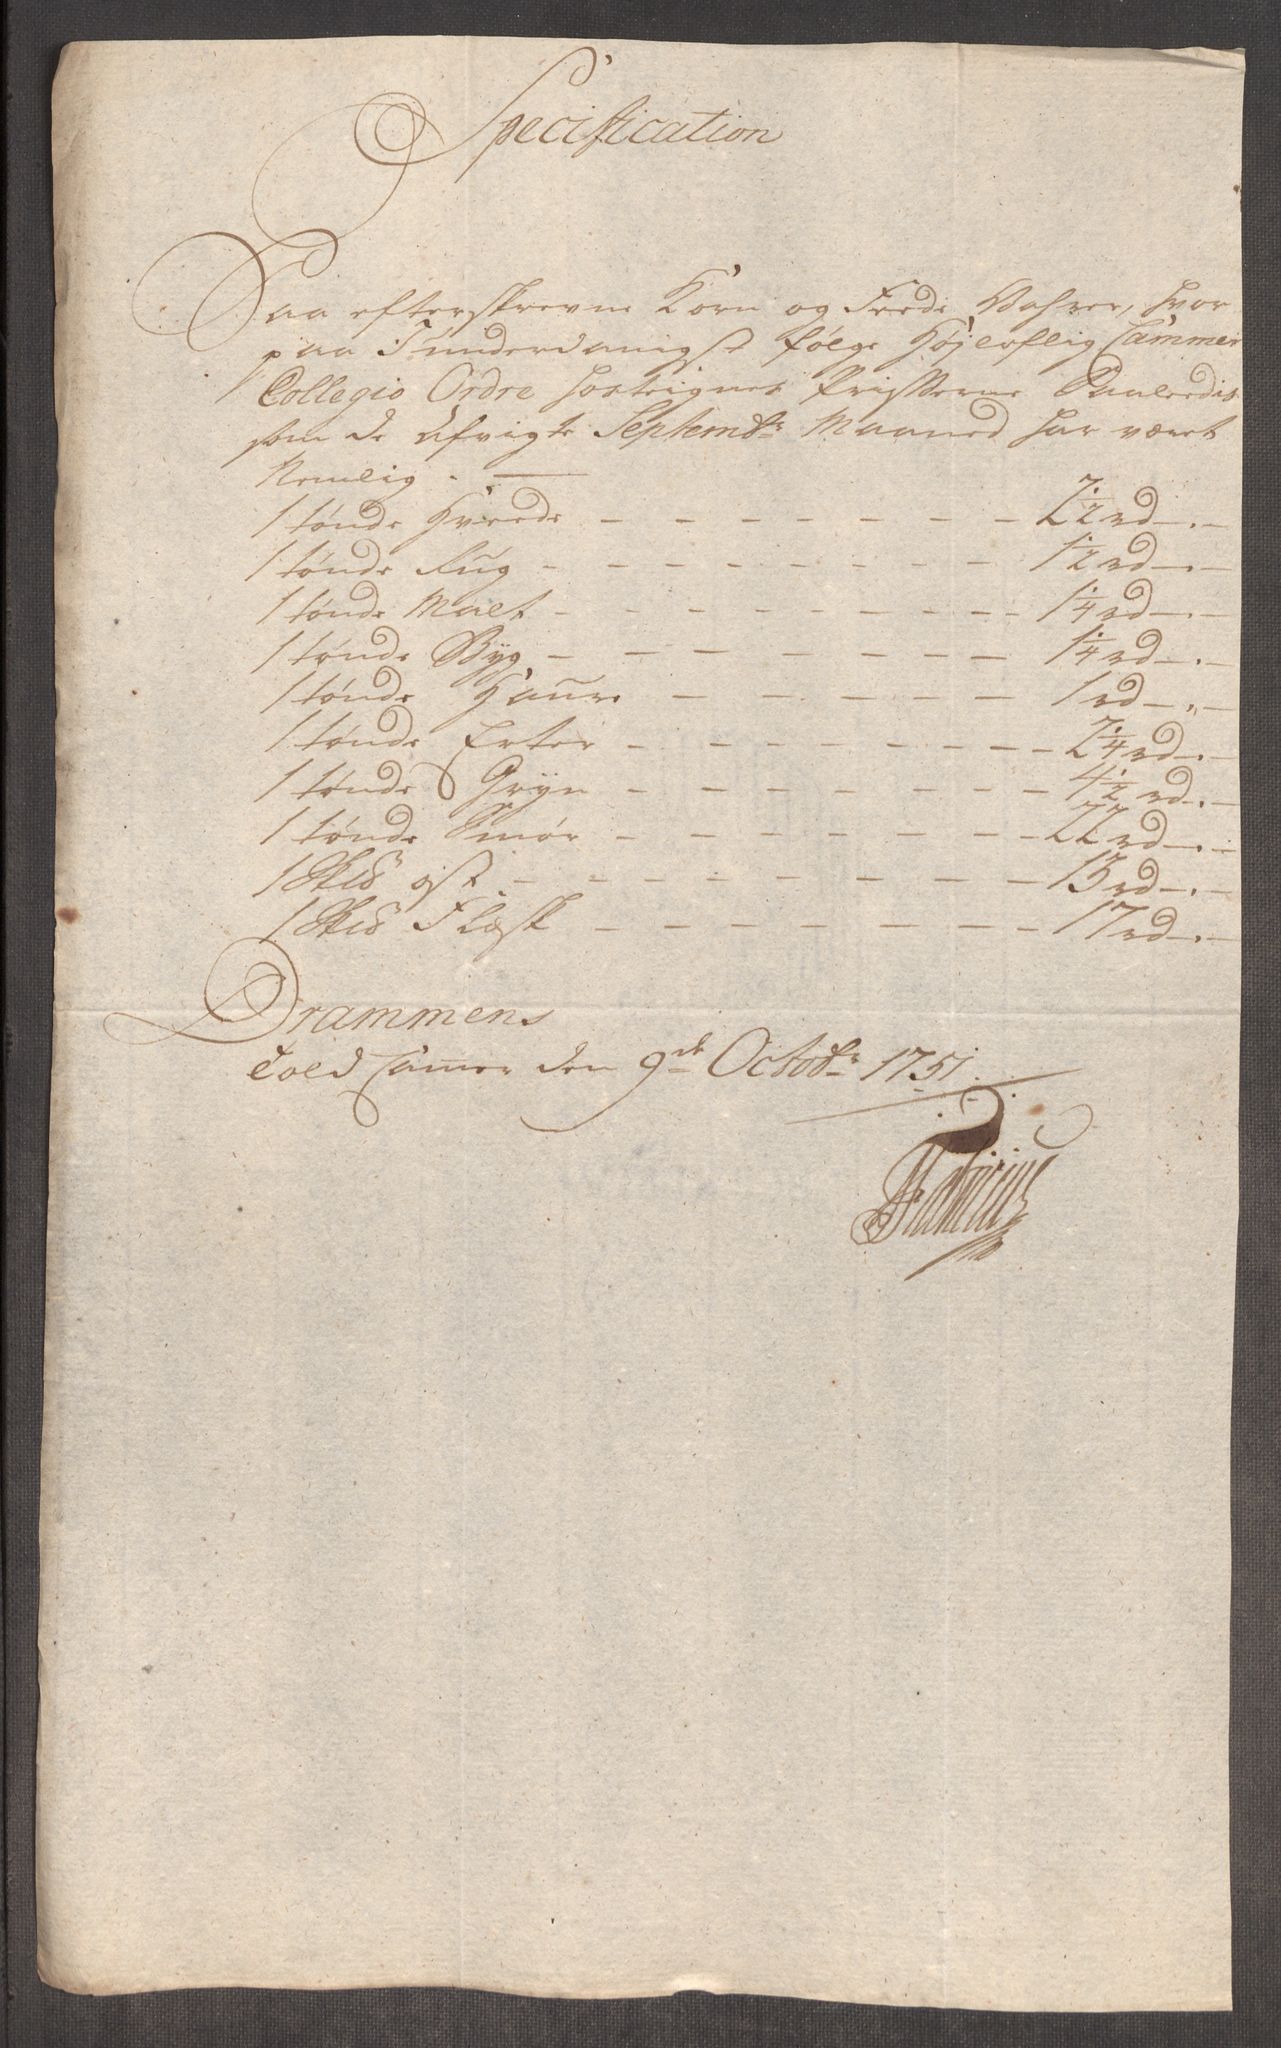 Specification
Paa efterskrevne Korn og Feede Vahrer, hvor
paa I underdanigst følge Høylovlig Cammer
Collegio Ordre hostegnes Prisserne Saaledis
som de udi afvigte Septembr Maaned har været
Nemlig
1 tønde Hveede - - - - - - - 2 1/2 rd - . -
1 tønde Rug - - - - - - - 1 1/2 rd - . -
1 tønde Malt - - - - - - - 1 1/4 rd - . -
1 tønde Byg - - - - - - - 1 1/4 rd - . -
1 tønde Haure - - - - - - 1 rd - . -
1 tønde Erter - - - - - - - 2 1/4 rd - . -
1 tønde Gryn - - - - - - - 4 1/2 rd - . -
1 tønde Smør - - - - - - - 22 rd - . -
1 Sk℔ ost - - - - - - - 13 rd - . -
1 Sk℔ Flesk - - - - - - - 17 rd - . -
Drammens
Told Camer den 9de Octobr 1751